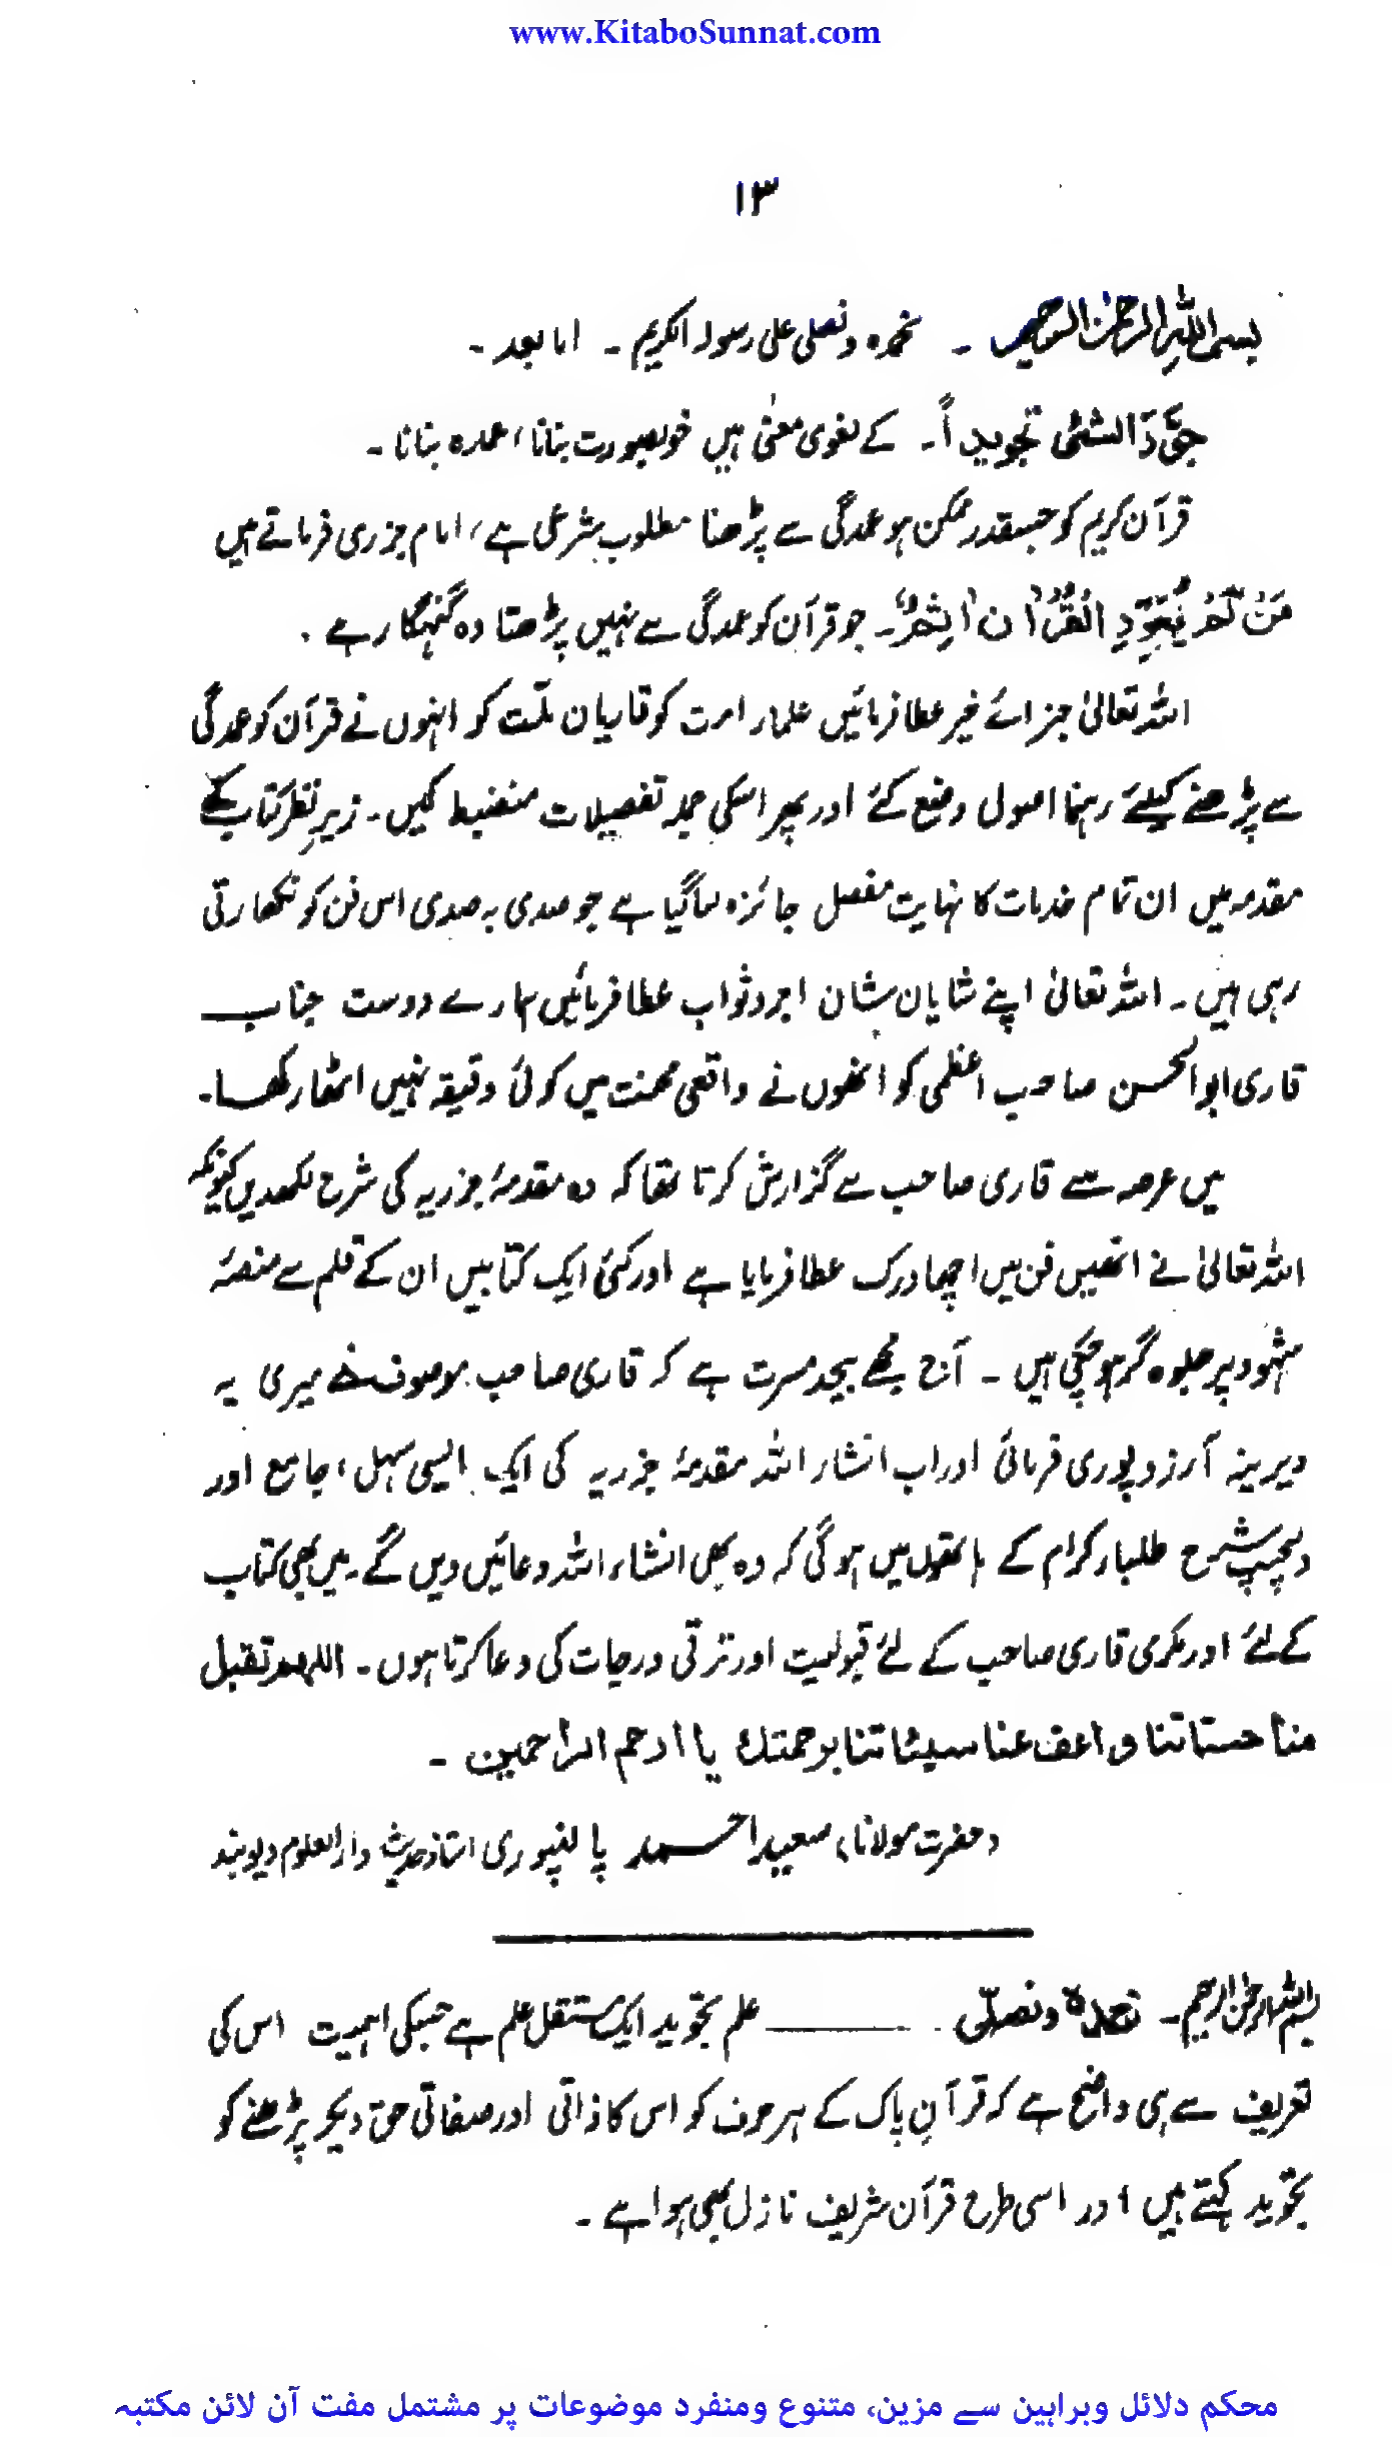 www.KitaboSunnat.com
۱۳
بسم اللہ الرحمٰن الرحیم ۔ نحمدہ ونصلی علی رسولہ الکریم ۔ اما بعد ۔
جَوَّدَ الشئی تجویداً ۔ کے لغوی معنیٰ ہیں خوبصورت بنانا، عمدہ بنانا ۔
قرآن کریم کو جسقدر ممکن ہو عمدگی سے پڑھنا مطلوب شرعی ہے، امام جزری فرماتے ہیں
مَنْ لَّمْ یُجَوِّدِ الْقُرْاٰنَ اٰثِمٌ ۔ جو قرآن کو عمدگی سے نہیں پڑھتا وہ گنہگار ہے ۔
اللہ تعالیٰ جزائے خیر عطا فرمائیں علماء امت کو قاریان ملّت کو انہوں نے قرآن کو عمدگی
سے پڑھنے کیلئے رہنما اصول وضع کئے اور پھر اسکی جملہ تفصیلات منضبط کیں ۔ زیرِ نظر کتاب کے
مقدمہ میں ان تمام خدمات کا نہایت مفصل جائزہ لیا گیا ہے جو صدی بہ صدی اس فن کو نکھارتی
رہی ہیں ۔ اللہ تعالیٰ اپنے شایان شان اجر وثواب عطا فرمائیں ہمارے دوست جناب
قاری ابوالحسن صاحب اعظمی کو انھوں نے واقعی محنت میں کوئی دقیقہ نہیں اٹھا رکھا ۔
میں عرصہ سے قاری صاحب سے گزارش کرتا تھا کہ وہ مقدمۂ جزریہ کی شرح لکھدیں کیونکہ
اللہ تعالیٰ نے انھیں فن میں اچھا درک عطا فرمایا ہے اور کئی ایک کتابیں ان کے قلم سے منصۂ
شہود پر جلوہ گر ہو چکی ہیں ۔ آج مجھے بیحد مسرت ہے کہ قاری صاحب موصوف نے میری یہ
دیرینہ آرزو پوری فرمائی اور اب انشاء اللہ مقدمۂ جزریہ کی ایک ایسی سہل، جامع اور
دلچسپ شرح طلباء کرام کے ہاتھوں میں ہوگی کہ وہ بھی انشاء اللہ دعائیں دیں گے ۔ میں بھی کتاب
کے لئے اور مکرمی قاری صاحب کے لئے قبولیت اور ترقی درجات کی دعا کرتا ہوں ۔ اللہم تقبل
منا حسناتنا واعف عنا سیئاتنا برحمتك یا ارحم الراحمین ۔
(حضرت مولانا) سعید احمد پالنپوری استاذ حدیث دارالعلوم دیوبند
بسم اللہ الرحمٰن الرحیم ۔ نحمدہ ونصلّی ۔ علم تجوید ایک مستقل علم ہے جسکی اہمیت اس کی
تعریف سے ہی واضح ہے کہ قرآنِ پاک کے ہر حرف کو اس کا ذاتی اور صفاتی حق دیکر پڑھنے کو
تجوید کہتے ہیں اور اسی طرح قرآن شریف نازل بھی ہوا ہے ۔
محکم دلائل وبراہین سے مزین، متنوع ومنفرد موضوعات پر مشتمل مفت آن لائن مکتبہ